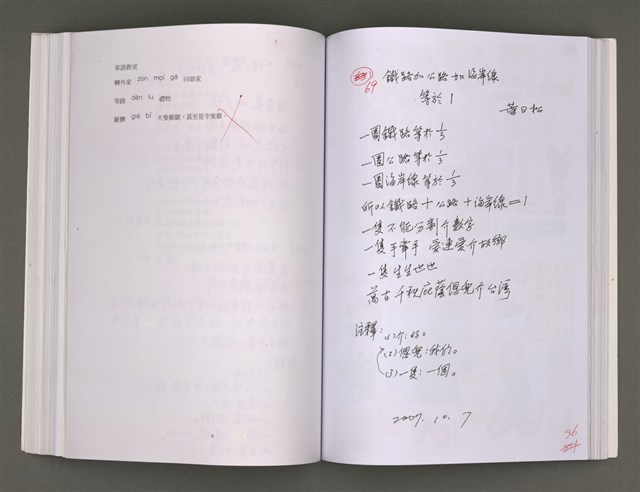 客語教室
轉外家 zón moi gá 回娘家
等路 dén lu 禮物
雞髀 gié bǐ 大隻雞腿，甚至是半隻雞
69
鐵路加公路加海岸線
等於 1
葉日松
一圈鐵路等於 1/3
一圈公路等於 1/3
一圈海岸線等於 1/3
所以鐵路＋公路＋海岸線＝1
一隻不能分割个數字
一隻手牽手 愛連愛个故鄉
一隻生生世世
萬古千秋庇蔭𠊎兜个台灣
注釋：
(1)个：的。
(2)𠊎兜：我們。
(3)一隻：一個。
2007. 10. 7
96